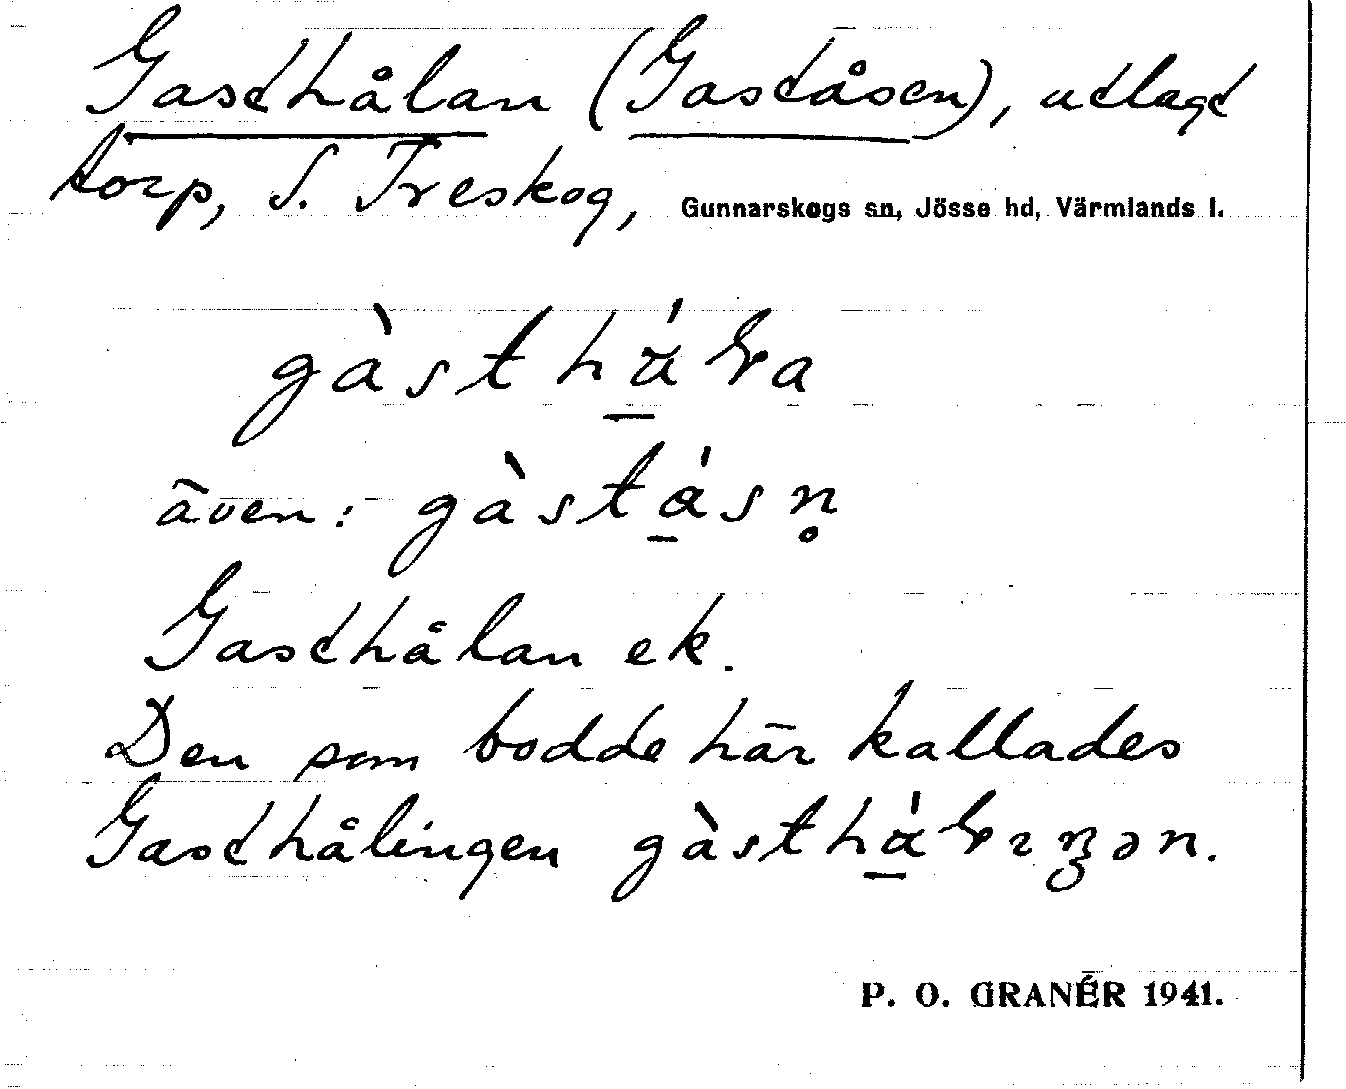 Gasthålan (Gaståsen), utlagt
torp, S. Treskog, Gunnarskogs sn, Jösse hd, Värmlands l.
gàsthá̱ɽa
även: gàstá̱sn̥
Gasthålan ek.
Den som bodde här kallades
Gasthålingen gàsthá̱ɽɪŋən.
P. O. GRANÉR 1941.